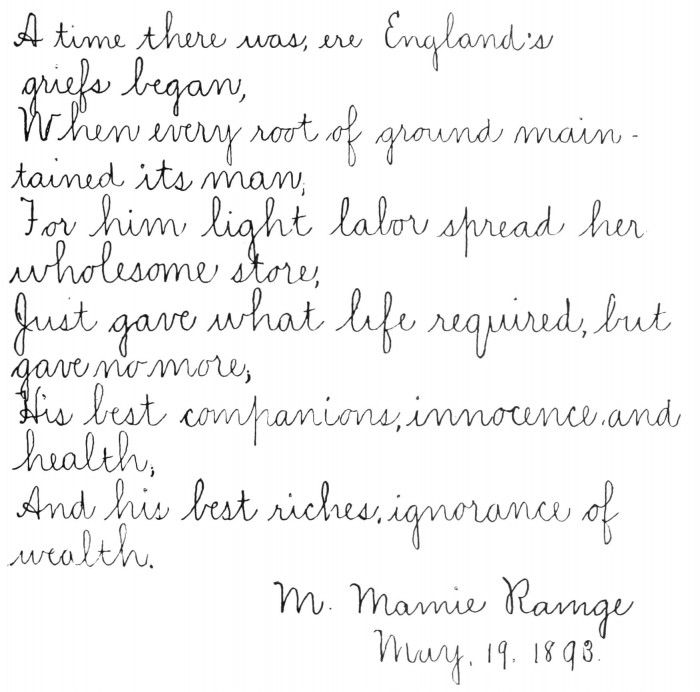 A time there was, ere England's
griefs began,
When every root of ground main-
tained its man,
For him light labor spread her
wholesome store,
Just gave what life required, but
gave no more;
His best companions, innocence and
health;
And his best riches, ignorance of
wealth.
M. Mamie Ramge
May, 19. 1893.